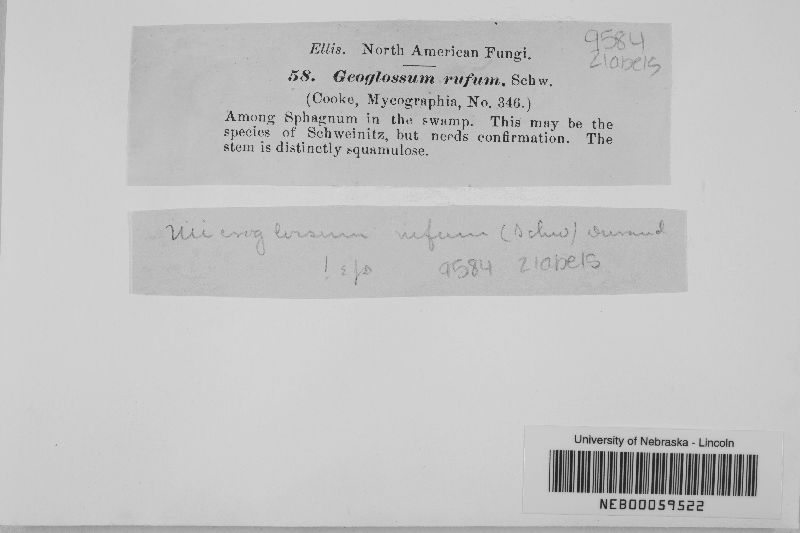 Ellis. North American Fungi.
9584
2 labels
58. Geoglossum rufum, Schw.
(Cooke, Mycographia, No. 346.)
Among Sphagnum in the swamp. This may be the
species of Schweinitz, but needs confirmation. The
stem is distinctly squamulose.
Microglossum rufum (Schw) Durand
9584 2 labels
University of Nebraska - Lincoln
NEB00059522